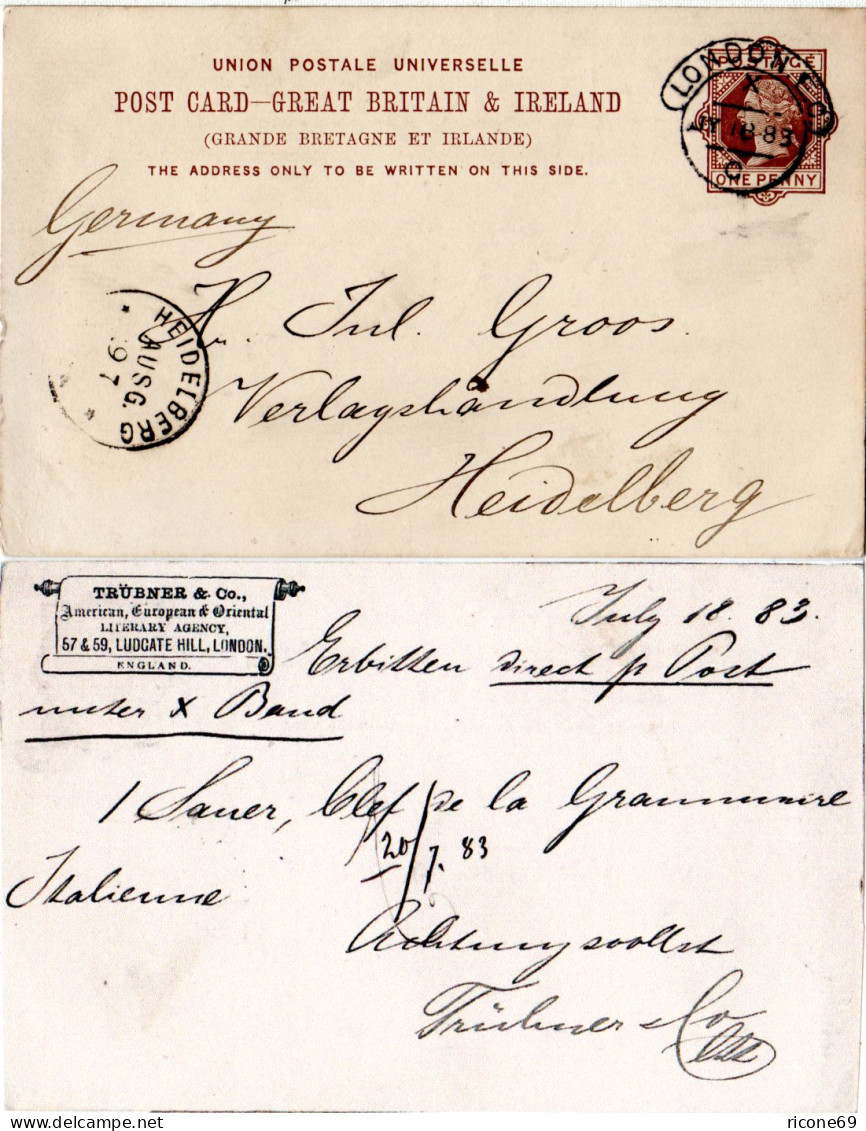 UNION POSTALE UNIVERSELLE
POST CARD—GREAT BRITAIN & IRELAND
(GRANDE BRETAGNE ET IRLANDE)
THE ADDRESS ONLY TO BE WRITTEN ON THIS SIDE.
POSTAGE
ONE PENNY
LONDON E.C
X
JY 18 83
C
Germany
H. Jul. Groos.
Verlagshandlung
Heidelberg
HEIDELBERG
AUSG.
TRÜBNER & Co.,
American, European & Oriental
LITERARY AGENCY,
57 & 59, LUDGATE HILL, LONDON.
ENGLAND.
July 18. 83.
Erbitten direct p Post
unter X Band
1 Sauer, Clef de la Grammaire
20/7. 83
Italienne
Achtungsvollst
Trübner & Co
ricone69